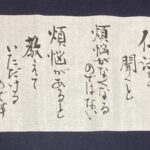 仏法を
聞くと
煩悩がなくなる
のではない
煩悩があると
教えて
いただける
のです